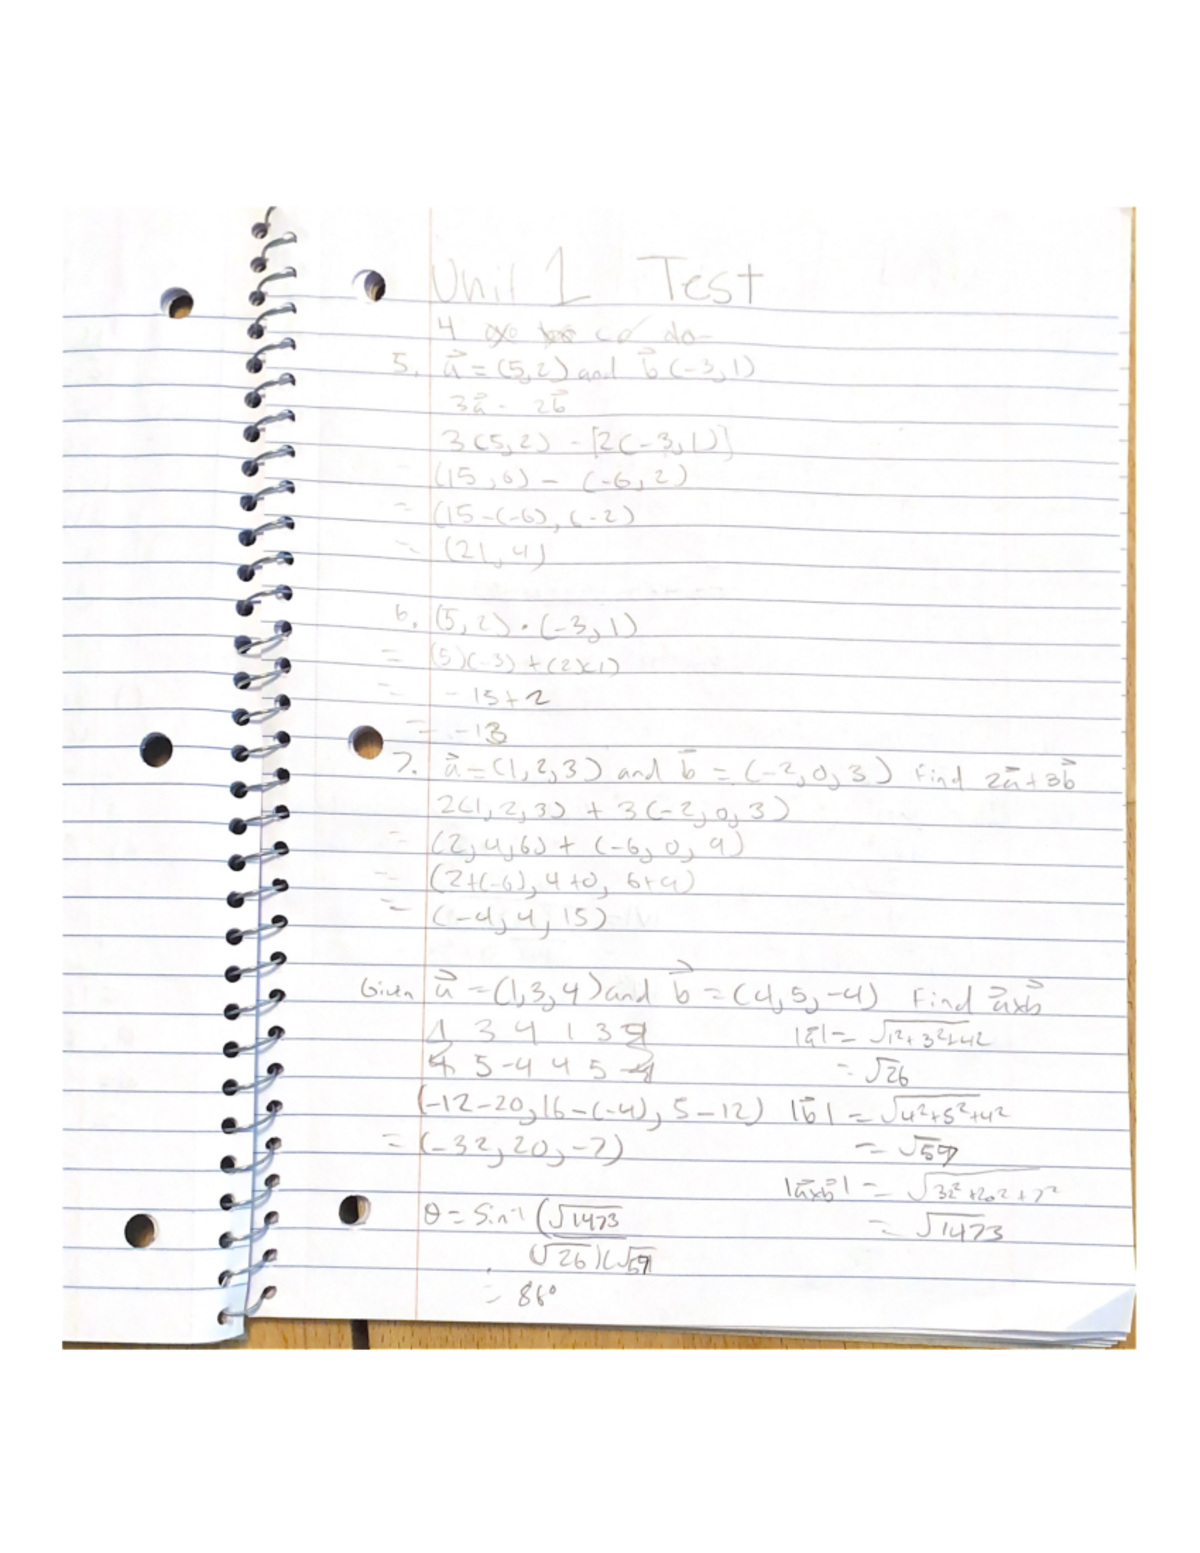 Unit 1 Test
4
5. a⃗ = (5,2) and b⃗ (-3,1)
3a⃗ - 2b⃗
3(5,2) - [2(-3,1)]
(15,6) - (-6,2)
= (15-(-6), 6-2)
= (21,4)
6. (5,2) · (-3,1)
= (5)(-3) + (2)(1)
= -15+2
= -13
7. a⃗ = (1,2,3) and b⃗ = (-2,0,3) Find 2a⃗+3b⃗
2(1,2,3) + 3(-2,0,3)
= (2,4,6) + (-6,0,9)
= (2+(-6), 4+0, 6+9)
= (-4,4,15)
Given a⃗ = (1,3,4) and b⃗ = (4,5,-4) Find a⃗xb⃗
1 3 4 1 3 4 |a⃗| = √1²+3²+4²
4 5 -4 4 5 -4 = √26
(-12-20, 16-(-4), 5-12) |b⃗| = √4²+5²+4²
= (-32,20,-7) = √57
|a⃗xb⃗| = √32²+20²+7²
θ = Sin⁻¹ (√1473 = √1473
(√26)(√57
= 86°